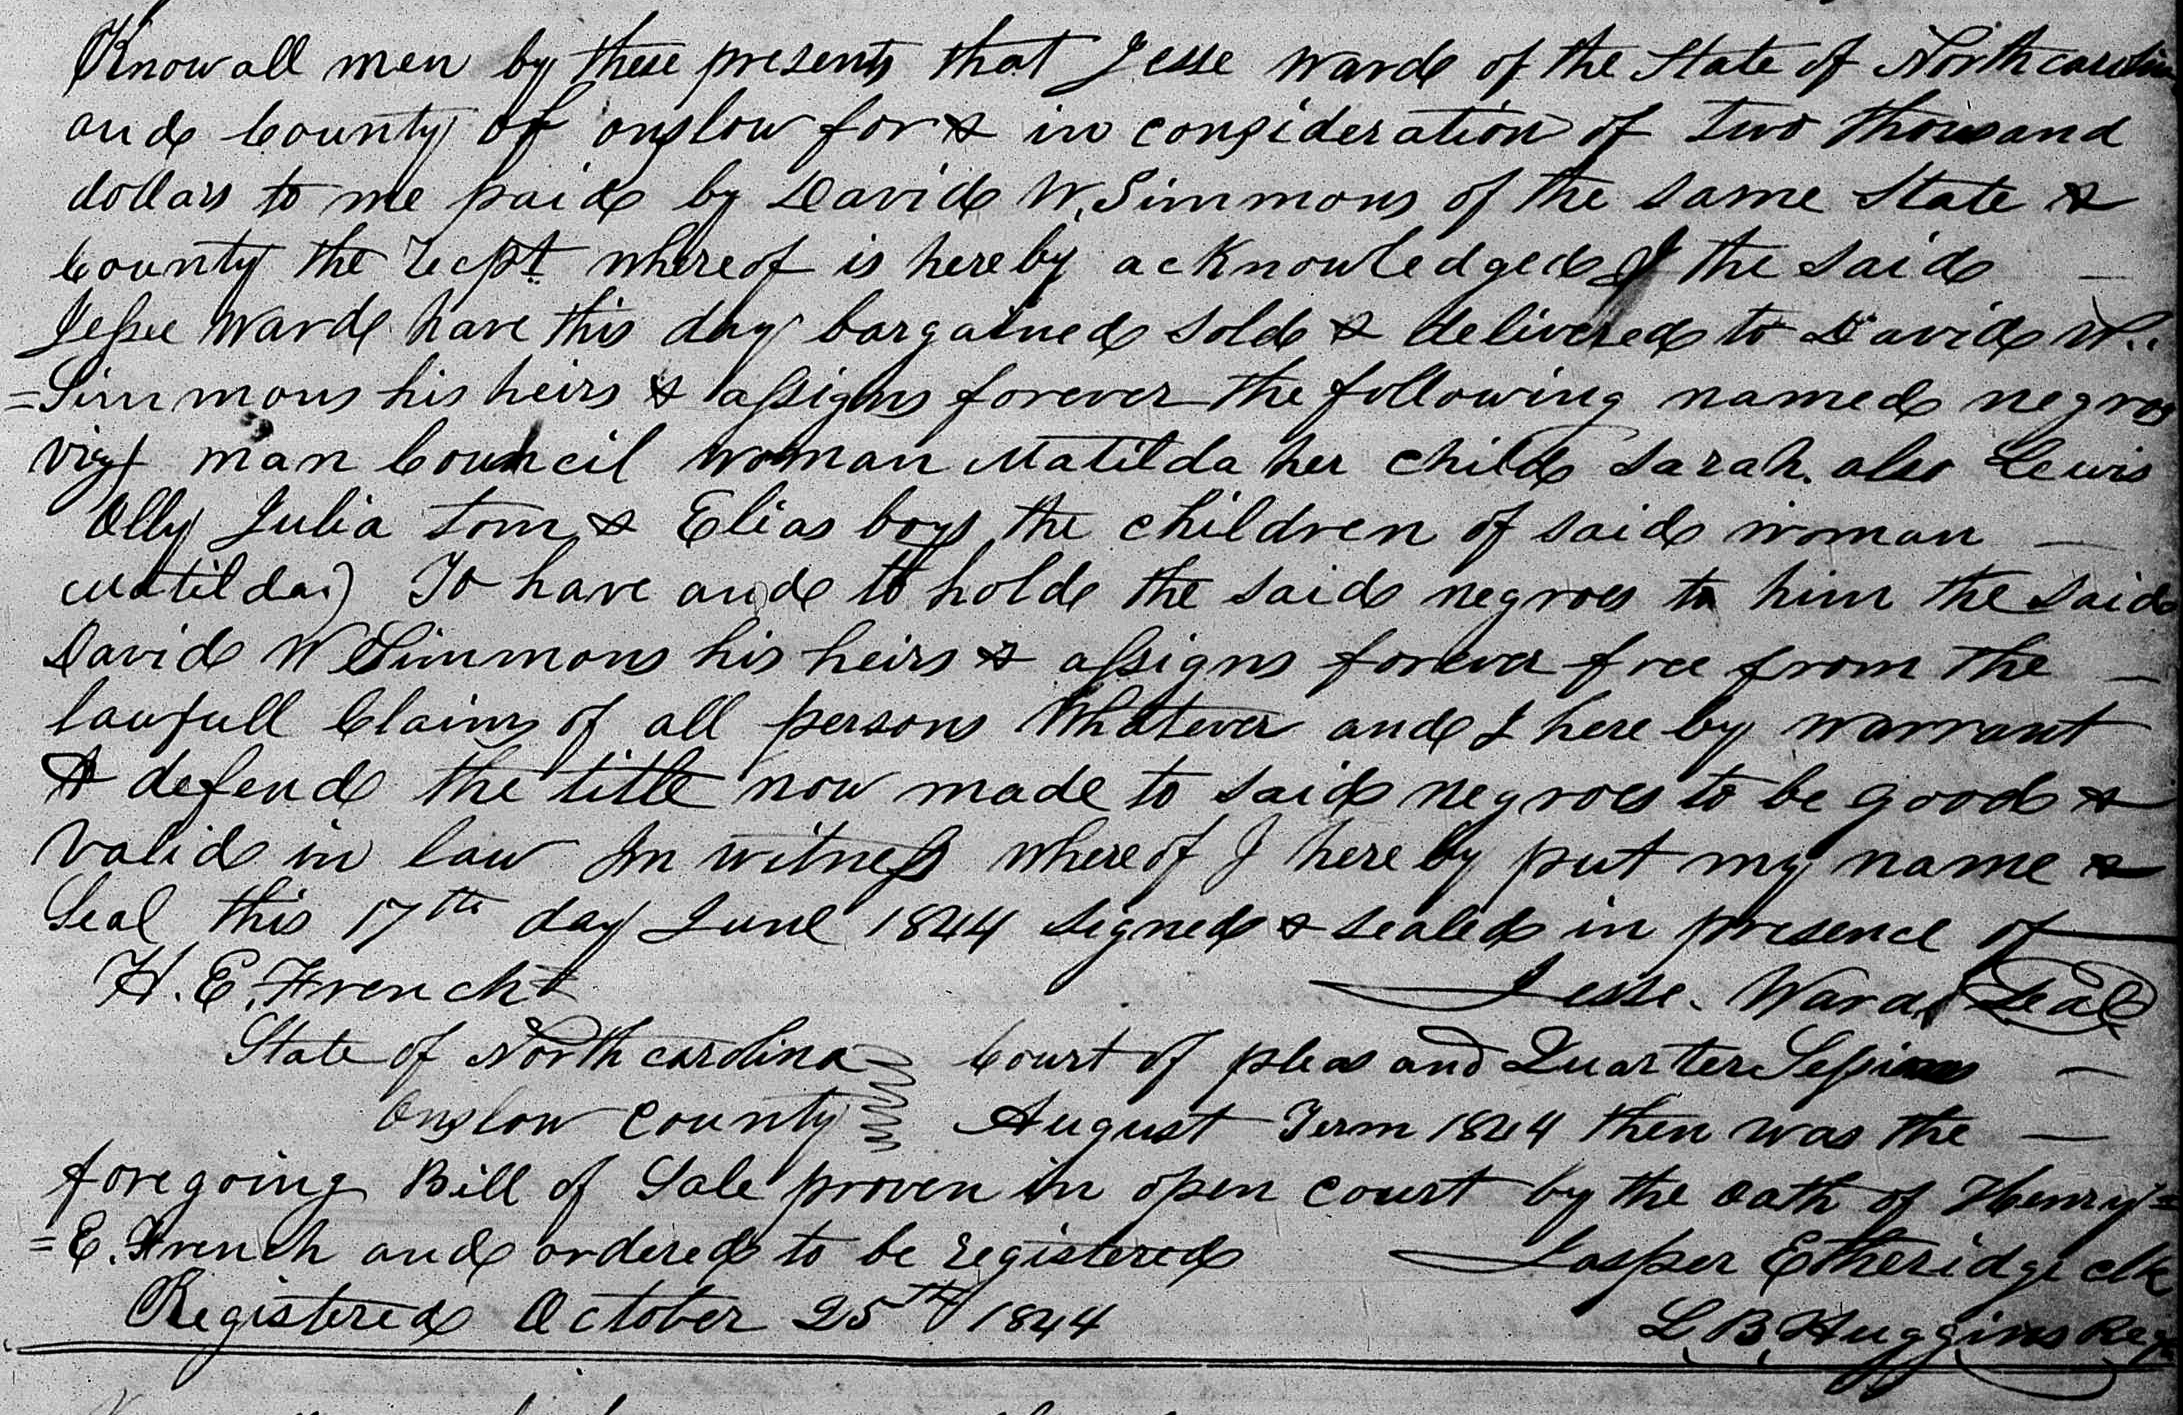 Know all men by these presents that Jesse Ward of the State of North carolina
and County of onslow for & in consideration of two thousand
dollars to me paid by David W. Simmons of the same State &
County the Recpt. whereof is hereby acknowledged I the said —
Jessee Ward have this day bargained sold & delivered to David W..
=Simmons his heirs & assigns forever the following named negros
viz) man Council woman Matilda her child Sarah. also Lewis
Olly Julia Tom & Elias boys the children of said woman —
Matilda.) To have and to hold the said negroes to him the said
David W Simmons his heirs & assigns forever free from the —
lawfull Claims of all persons Whatever and I here by warrant
& defend the title now made to said negroes to be good &
valid in law In witness whereof I here by put my name &
Seal this 17th day June 1844 signed & sealed in presence of
H. E. French Jesse. Ward Seal
State of North carolina Court of pleas and Quarter Sessions —
Onslow County August Term 1844 then was the —
foregoing Bill of Sale proven in open court by the oath of Henry=
=E. French and ordered to be registered Jasper Etheridge clk
Registered October 25th 1844 L. B. Huggins Reg.